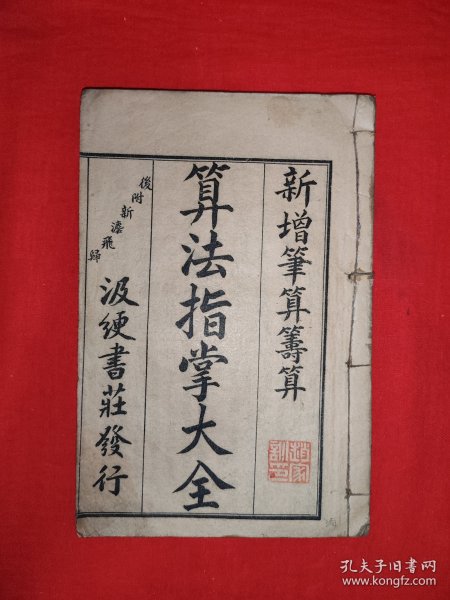 新增筆算籌算
算法指掌大全
後附新法飛歸
汲綆書莊發行
孔夫子旧书网
www.kongfz.com